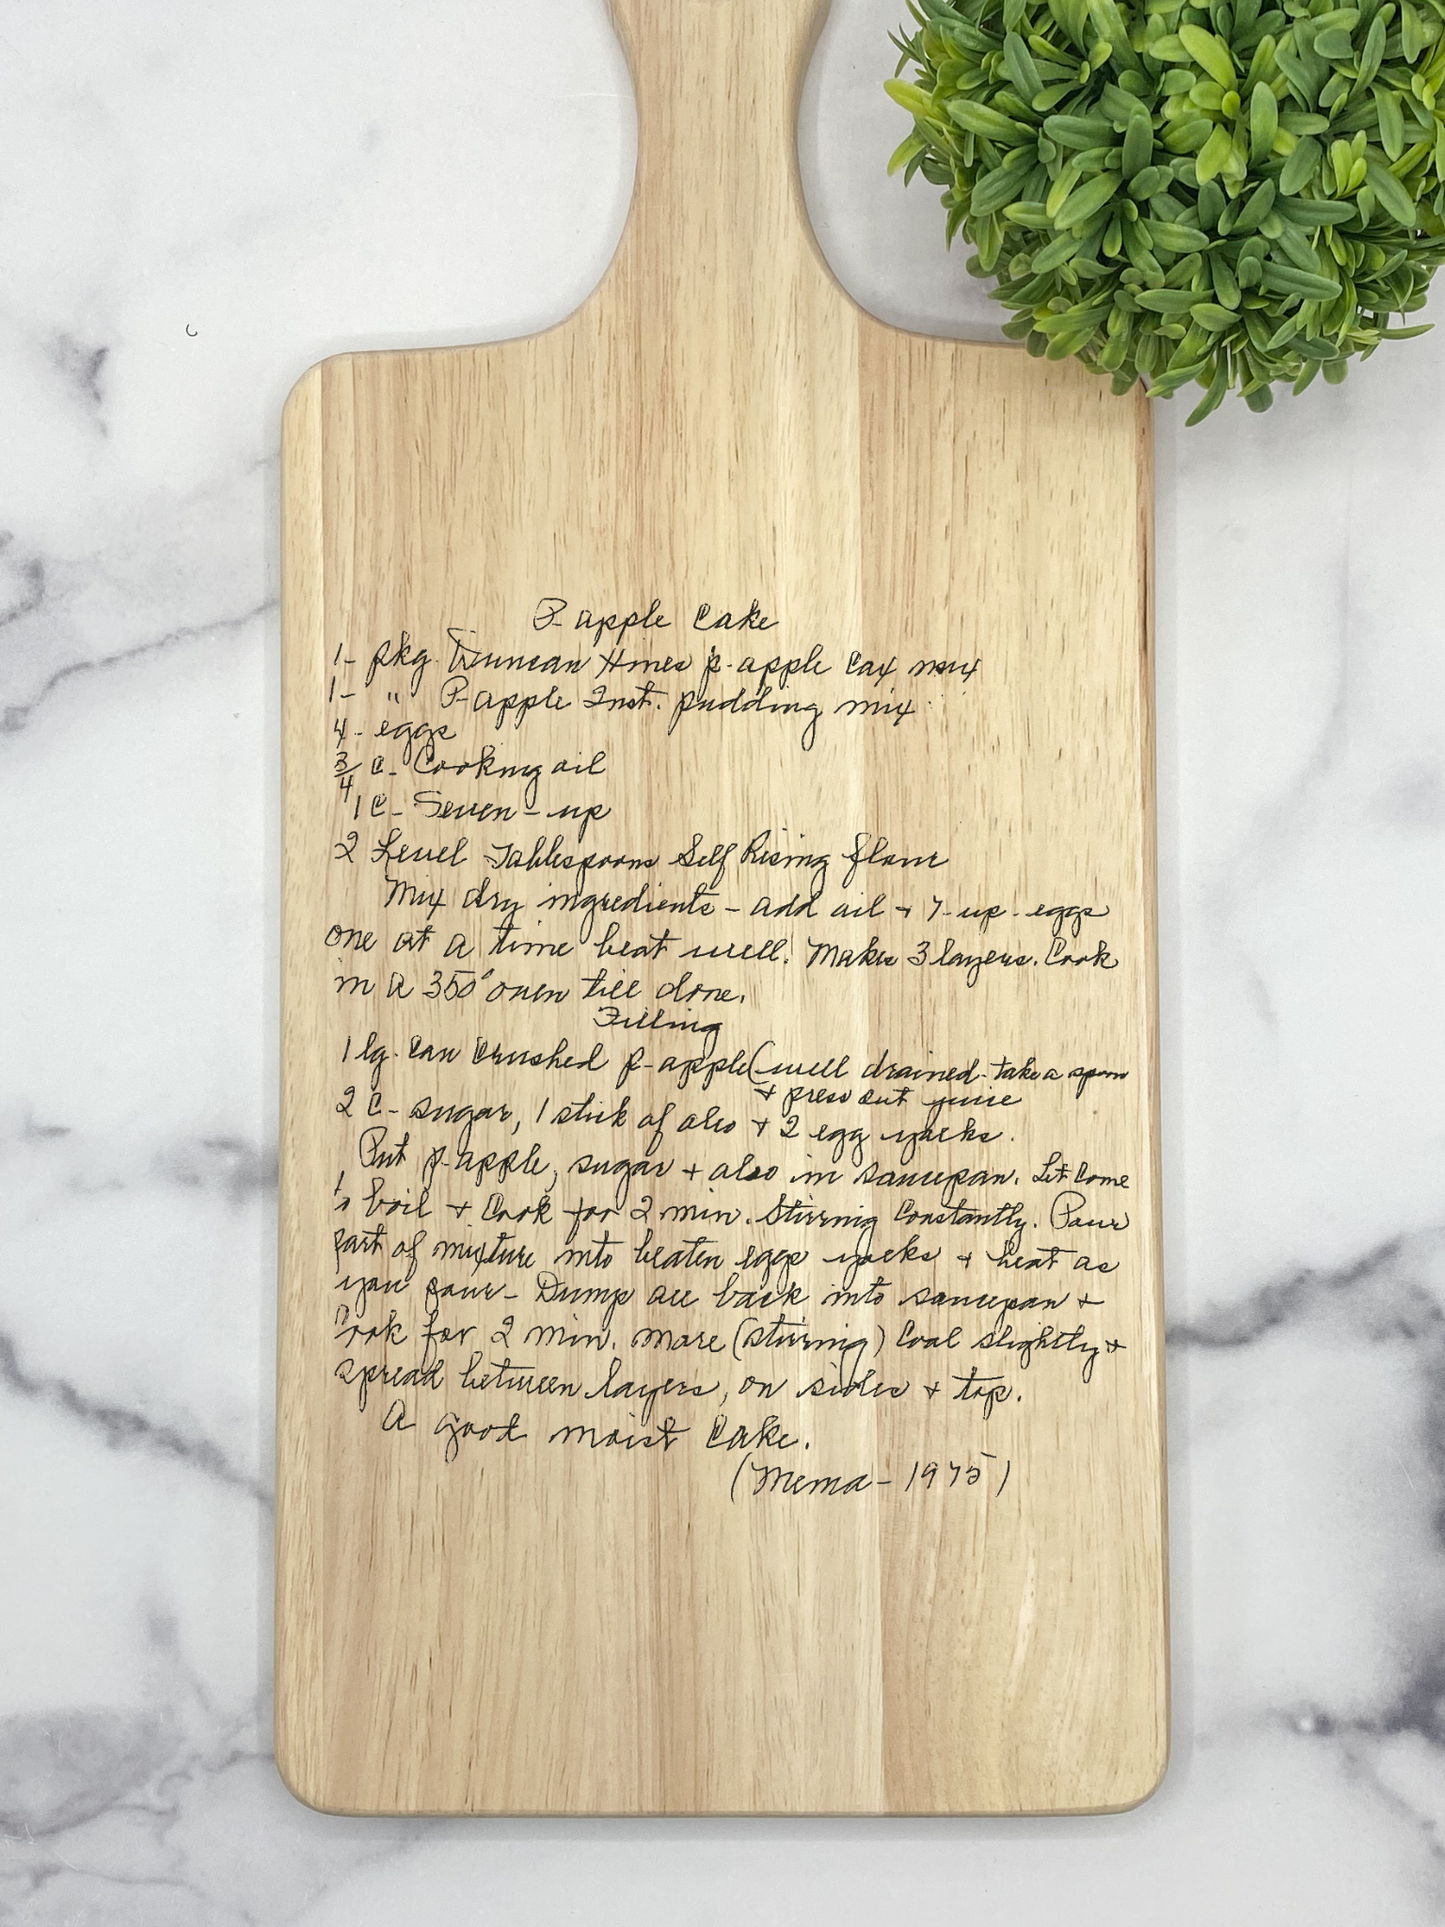 P-apple Cake
1- pkg. Duncan Hines p-apple Cax mix
1- " P-apple Inst. pudding mix
4- eggs
3/4 C- Cooking oil
1 C- Seven-up
2 Level Tablespoons Self Rising flour
Mix dry ingredients - add oil + 7-up - eggs
one at a time beat well. Makes 3 layers. Cook
in a 350° oven till done.
Filling
1 lg. Can Crushed p-apple (well drained - take a spoon
+ press out juice
2 C- sugar, 1 stick of oleo + 2 egg yolks.
Put p-apple, sugar + oleo in saucepan. Let Come
to boil + Cook for 2 min. Stirring Constantly. Pour
part of mixture into beaten eggs yolks + beat as
you pour - Dump all back into saucepan +
Cook for 2 min. more (stirring) Cool slightly +
spread between layers, on sides + top.
A good moist Cake.
(Mema - 1975)